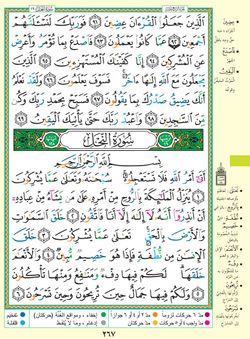 الَّذِينَ جَعَلُوا الْقُرْءَانَ عِضِينَ ٩١ فَوَرَبِّكَ لَنَسْـَٔلَنَّهُمْ
أَجْمَعِينَ ٩٢ عَمَّا كَانُوا يَعْمَلُونَ ٩٣ فَاصْدَعْ بِمَا تُؤْمَرُ وَأَعْرِضْ
عَنِ الْمُشْرِكِينَ ٩٤ إِنَّا كَفَيْنَاكَ الْمُسْتَهْزِءِينَ ٩٥ الَّذِينَ
يَجْعَلُونَ مَعَ اللَّهِ إِلَٰهًا ءَاخَرَ فَسَوْفَ يَعْلَمُونَ ٩٦ وَلَقَدْ نَعْلَمُ
أَنَّكَ يَضِيقُ صَدْرُكَ بِمَا يَقُولُونَ ٩٧ فَسَبِّحْ بِحَمْدِ رَبِّكَ وَكُن
مِّنَ السَّاجِدِينَ ٩٨ وَاعْبُدْ رَبَّكَ حَتَّىٰ يَأْتِيَكَ الْيَقِينُ ٩٩
سُورَةُ النَّحْلِ
بِسْمِ اللَّهِ الرَّحْمَٰنِ الرَّحِيمِ
أَتَىٰ أَمْرُ اللَّهِ فَلَا تَسْتَعْجِلُوهُ سُبْحَانَهُ وَتَعَالَىٰ عَمَّا يُشْرِكُونَ
١ يُنَزِّلُ الْمَلَائِكَةَ بِالرُّوحِ مِنْ أَمْرِهِ عَلَىٰ مَن يَشَاءُ مِنْ عِبَادِهِ
أَنْ أَنذِرُوا أَنَّهُ لَا إِلَٰهَ إِلَّا أَنَا فَاتَّقُونِ ٢ خَلَقَ السَّمَاوَاتِ
وَالْأَرْضَ بِالْحَقِّ تَعَالَىٰ عَمَّا يُشْرِكُونَ ٣ خَلَقَ الْإِنسَانَ
مِن نُّطْفَةٍ فَإِذَا هُوَ خَصِيمٌ مُّبِينٌ ٤ وَالْأَنْعَامَ
خَلَقَهَا لَكُمْ فِيهَا دِفْءٌ وَمَنَافِعُ وَمِنْهَا تَأْكُلُونَ
٥ وَلَكُمْ فِيهَا جَمَالٌ حِينَ تُرِيحُونَ وَحِينَ تَسْرَحُونَ ٦
٢٦٧